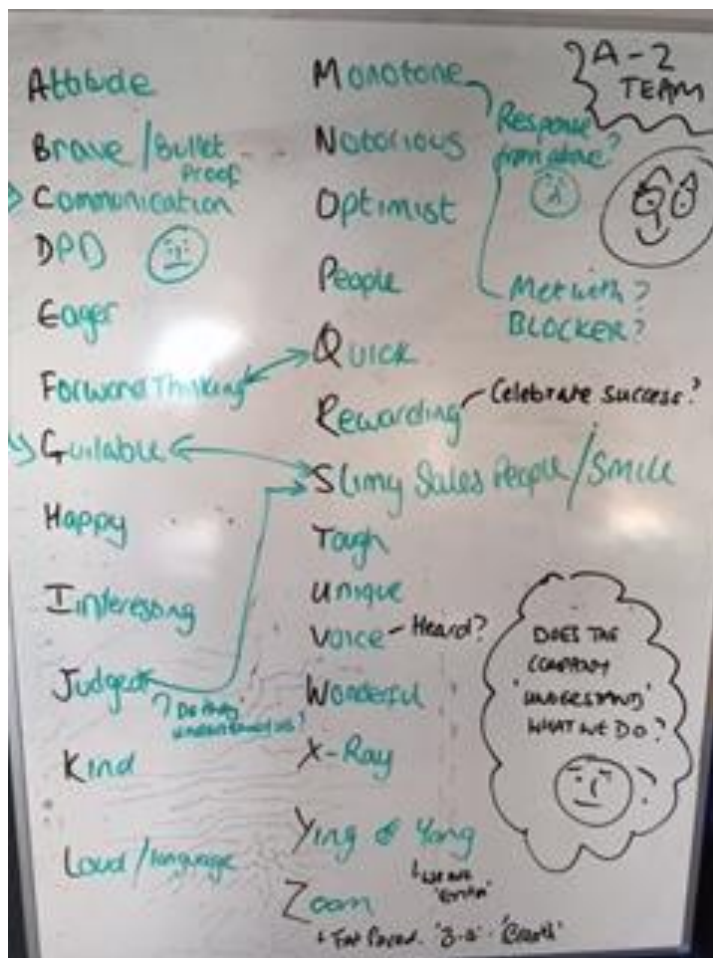 Attitude
Brave / Bullet
Proof
Communication
DPD
Eager
Forward Thinking
Guilable
Happy
Interesting
Judged
? Do they
understand us?
Kind
Loud / language
Monotone
Notorious
Optimist
People
Quick
Rewarding - Celebrate Success?
Slimy Sales People / Smile
Tough
Unique
Voice - Heard?
Wonderful
X-Ray
Ying & Yang
Zoom
A-Z
TEAM
Response
from above?
Met with?
BLOCKER?
DOES THE
COMPANY
'UNDERSTAND'
WHAT WE DO?